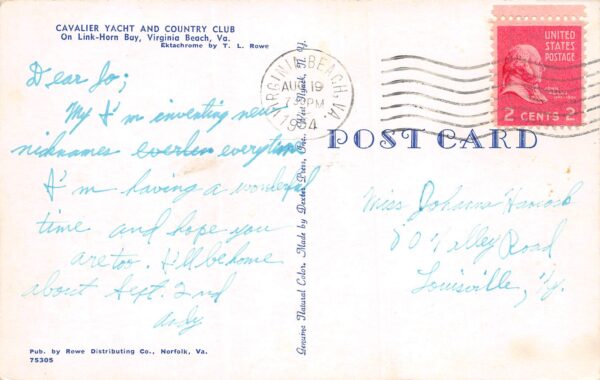 CAVALIER YACHT AND COUNTRY CLUB
On Link-Horn Bay, Virginia Beach, Va.
Ektachrome by T. L. Rowe
Dear Jo;
My I'm inventing new
nicknames everytime
I'm having a wonderful
time and hope you
are too. I'll be home
about Sept. 2nd
Andy
Pub. by Rowe Distributing Co., Norfolk, Va.
75305
Genuine Natural Color. Made by Dexter Press, Inc. West Nyack, N. Y.
VIRGINIA BEACH, VA.
AUG 19
PM
1954
UNITED
STATES
POSTAGE
2 CENTS 2
POST CARD
Miss Johanna Hancock
Valley Road
Louisville, Ky.